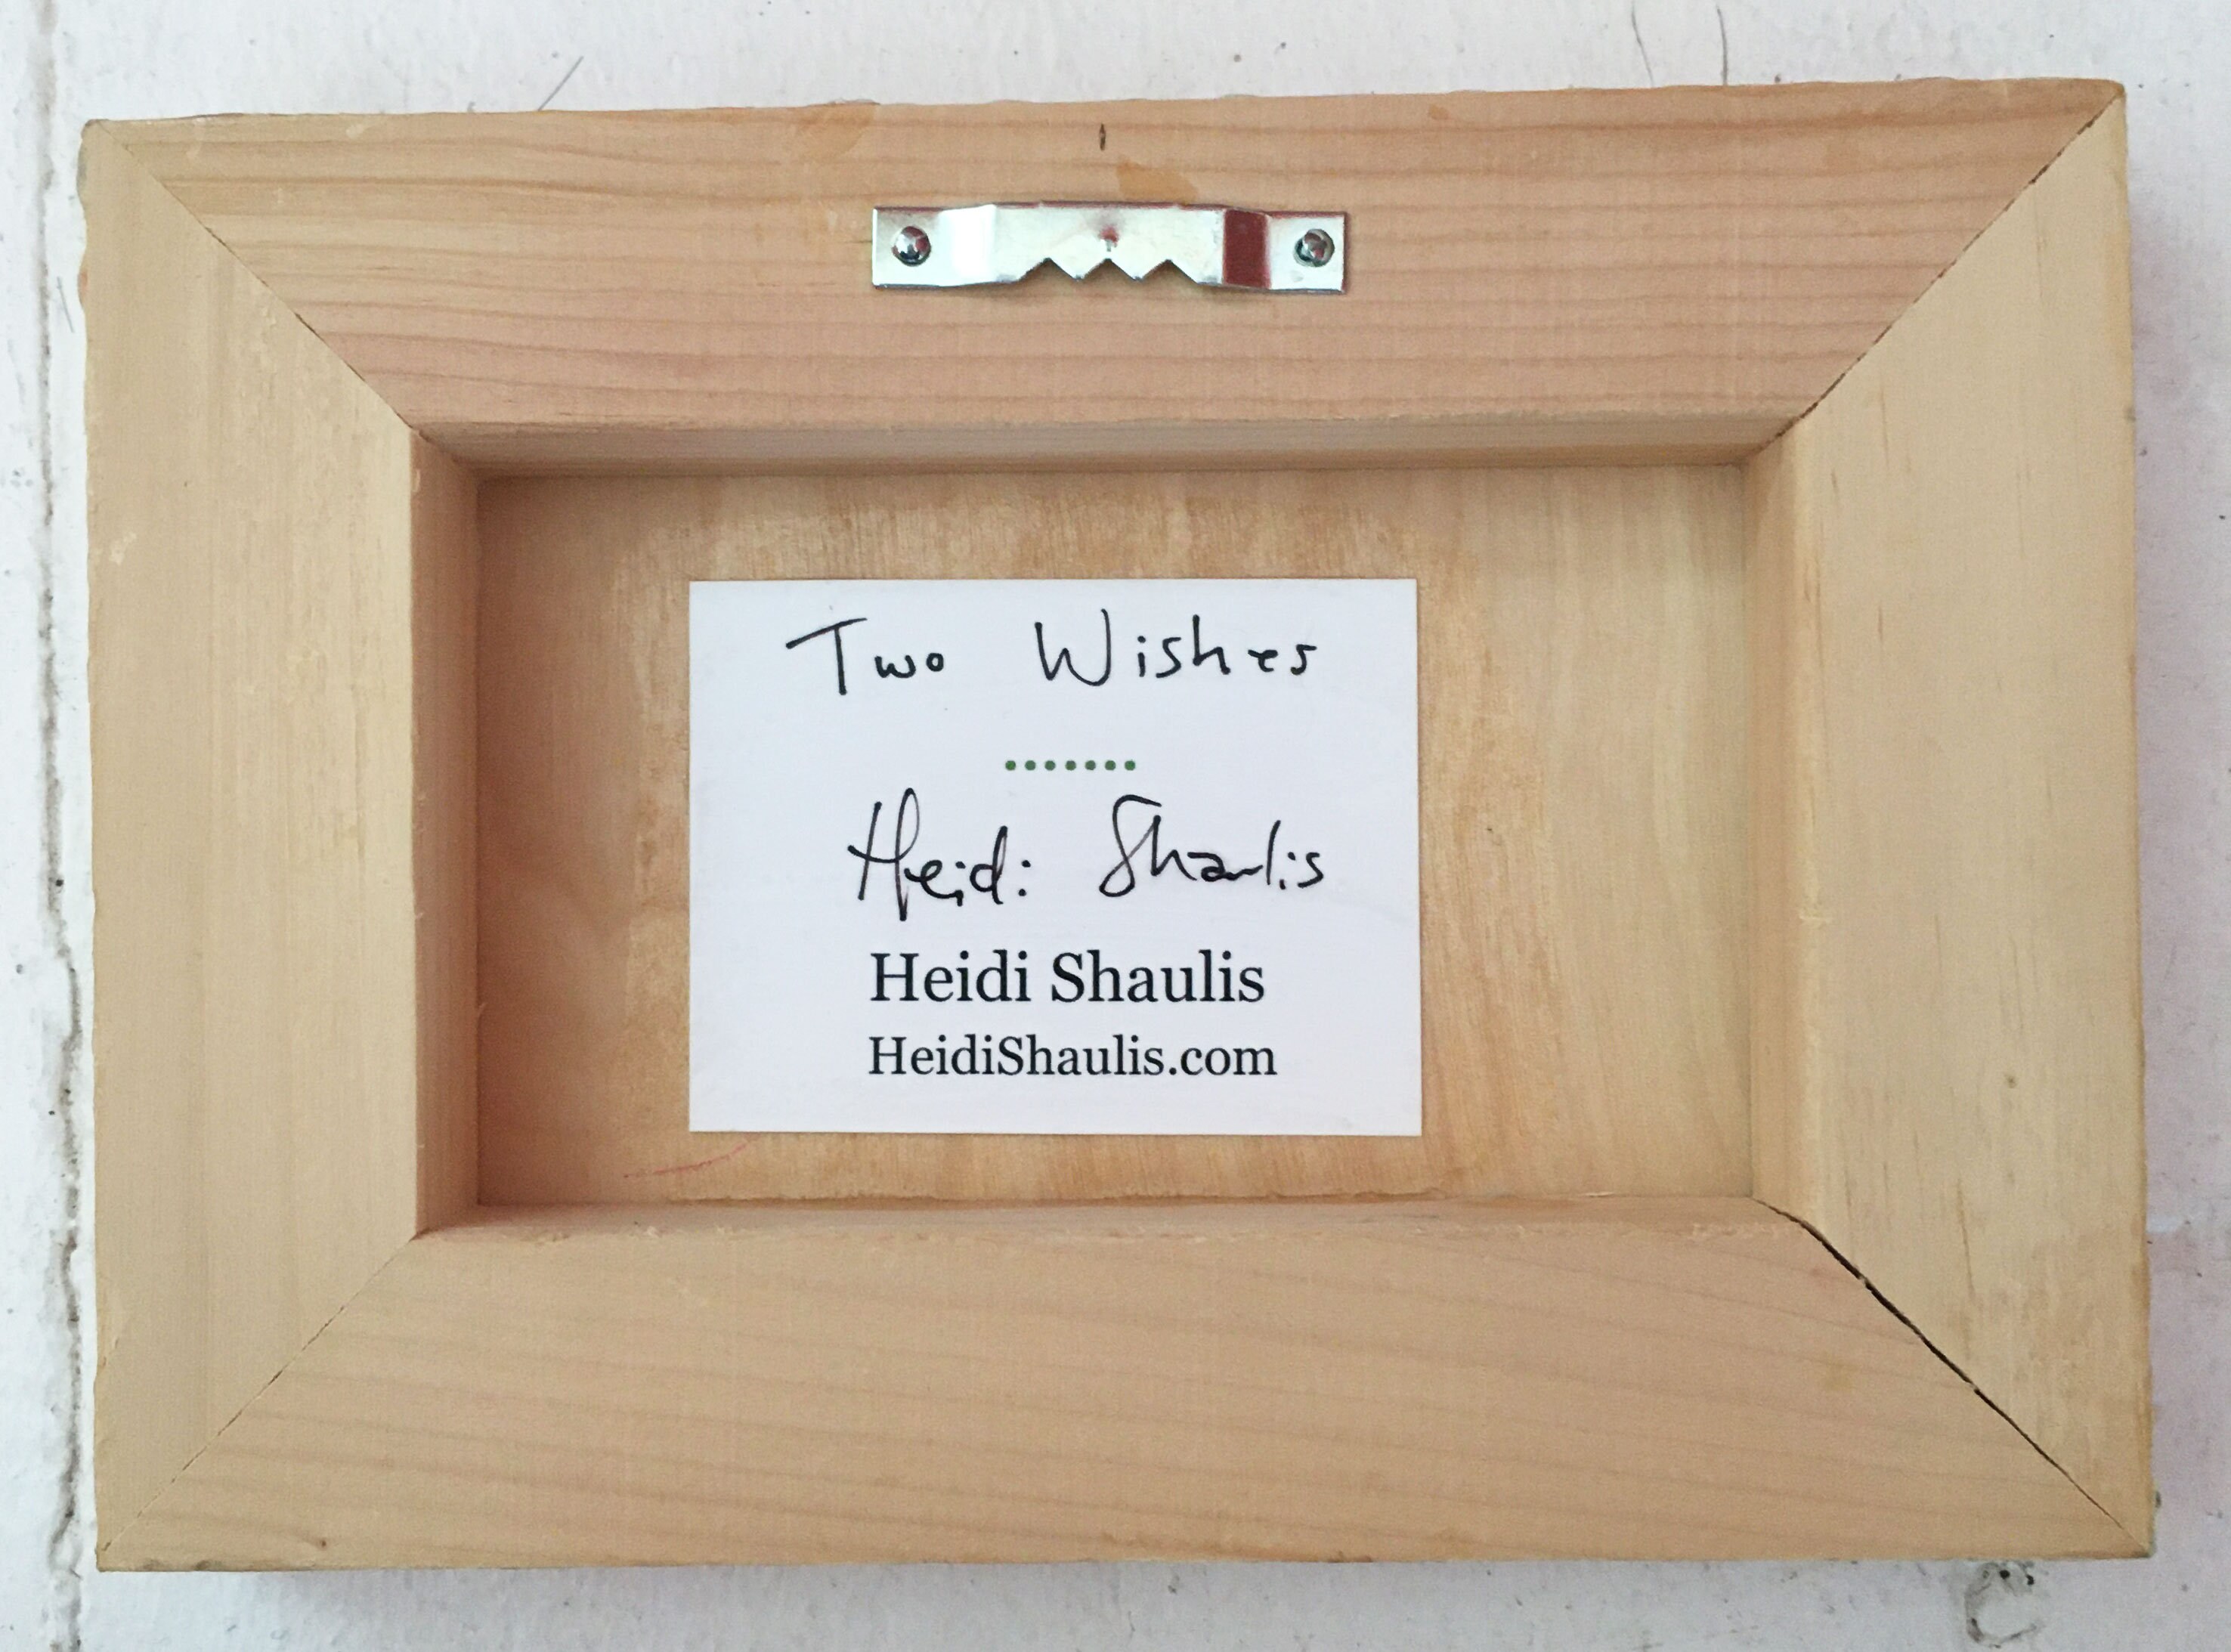 Two Wishes
Heidi Shaulis
Heidi Shaulis
HeidiShaulis.com